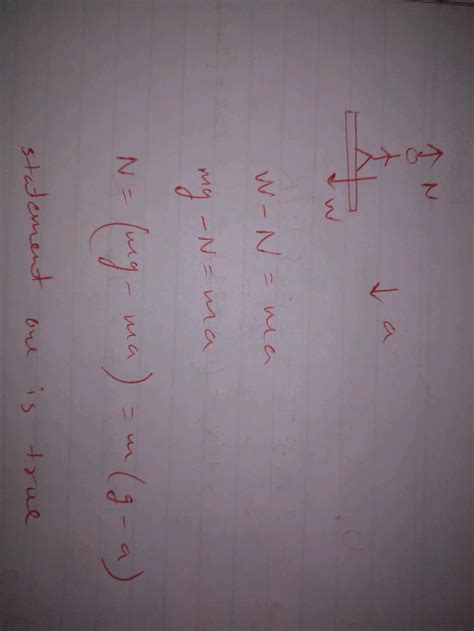 N
↓ a
W
W - N = ma
mg - N = ma
N = (mg - ma) = m(g - a)
statement one is true